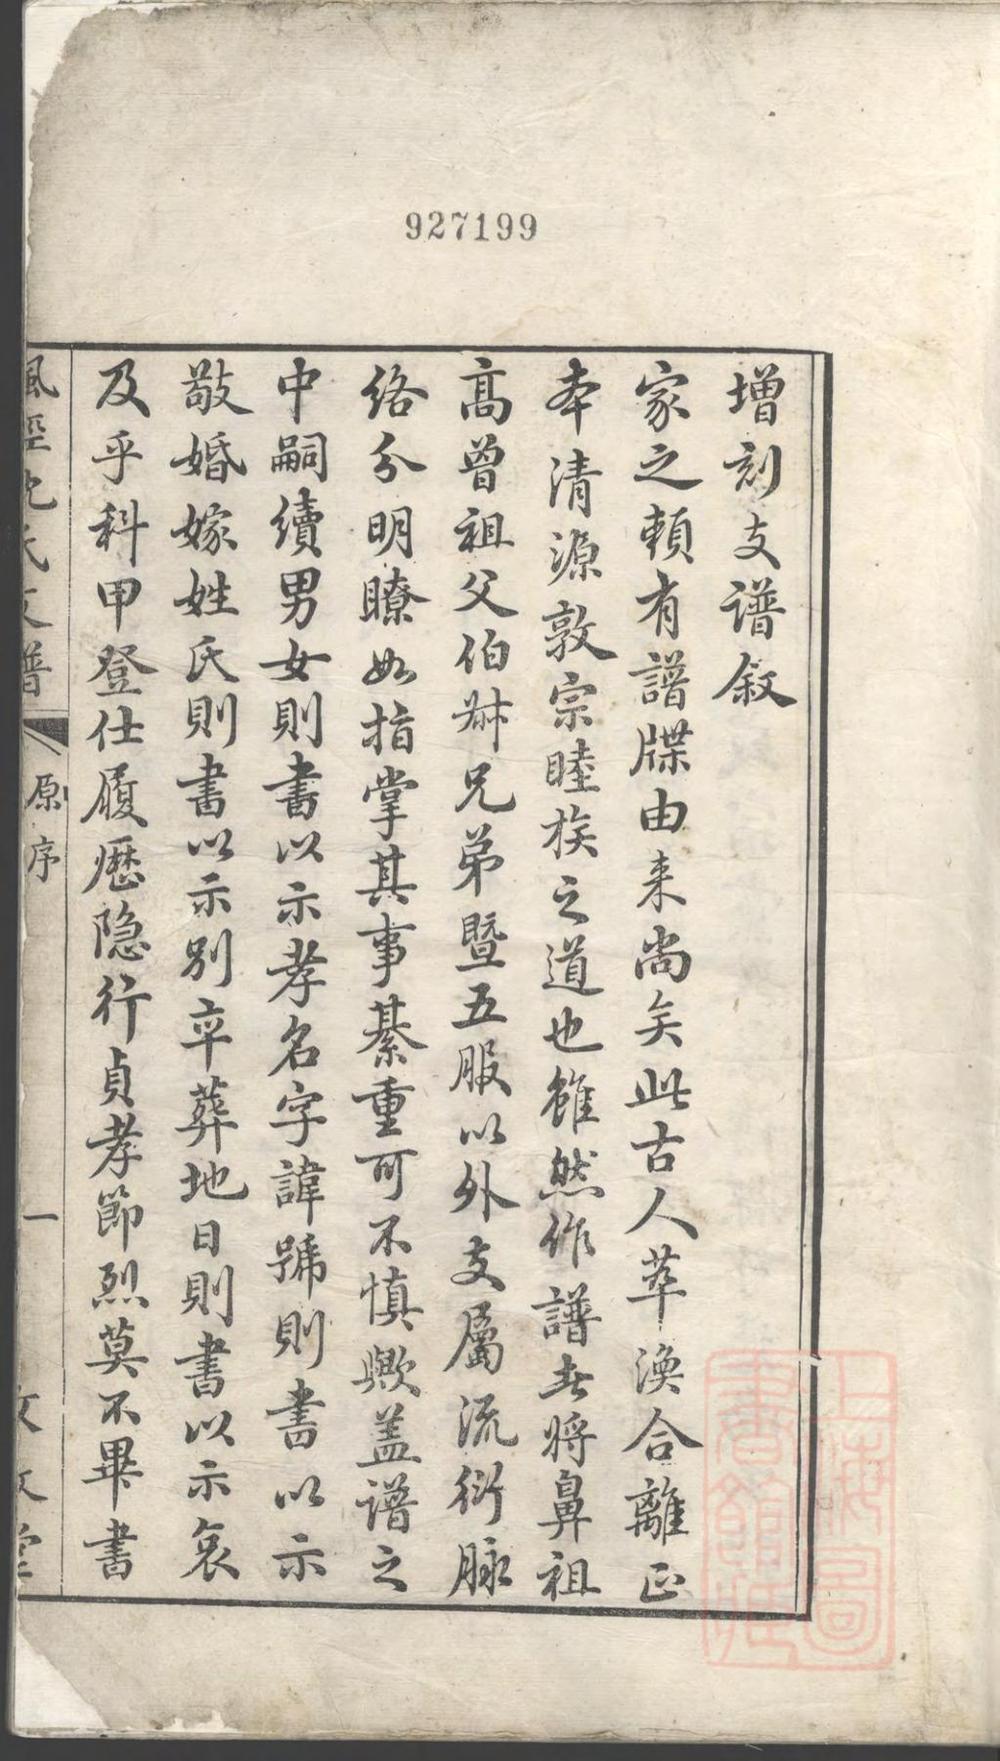 927199
增刻支譜叙
家之頼有譜牒由来尚矣此古人萃渙合離正
本清源敦宗睦族之道也雖然作譜者將鼻祖
高曾祖父伯叔兄弟暨五服以外支屬流衍脉
络分明瞭如指掌其事綦重可不慎歟盖譜之
中嗣續男女則書以示孝名字諱號則書以示
敬婚嫁姓氏則書以示別卒葬地日則書以示哀
及乎科甲登仕履歷隐行貞孝節烈莫不畢書
楓涇沈氏支譜
原序
一
上海圖
書館藏